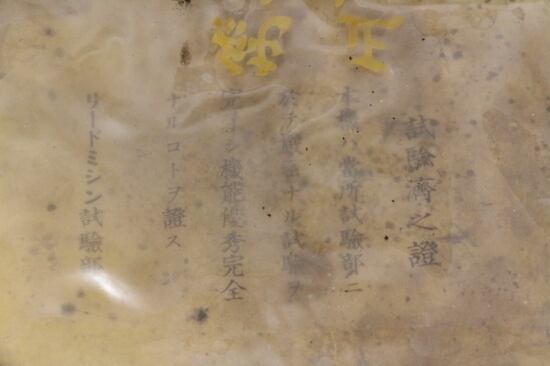 試驗濟之證
本機ハ當所試驗部ニ
於テ嚴密ナル試驗ヲ
完了シ機能優秀完全
ナルコトヲ證ス
リードミシン試驗部